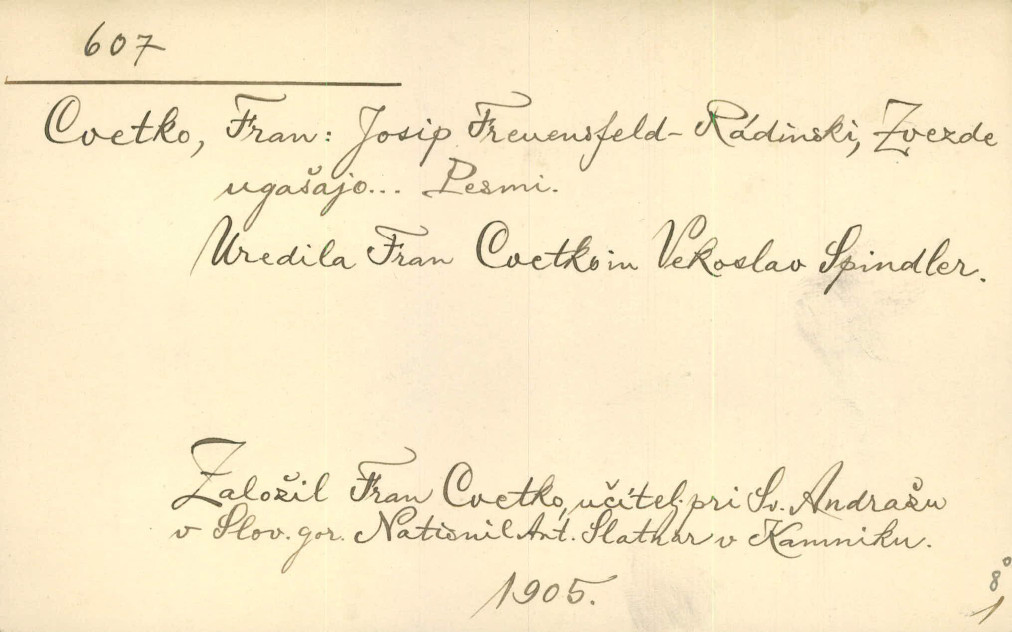 607
Cvetko, Fran: Josip Freuensfeld-Rádinski, Zvezde
ugašajo... Pesmi.
Uredila Fran Cvetko in Vekoslav Spindler.
Založil Fran Cvetko, učitelj pri Sv. Andražu
v Slov. gor. Natisnil Ant. Slatnar v Kamniku.
1905.
8°
1